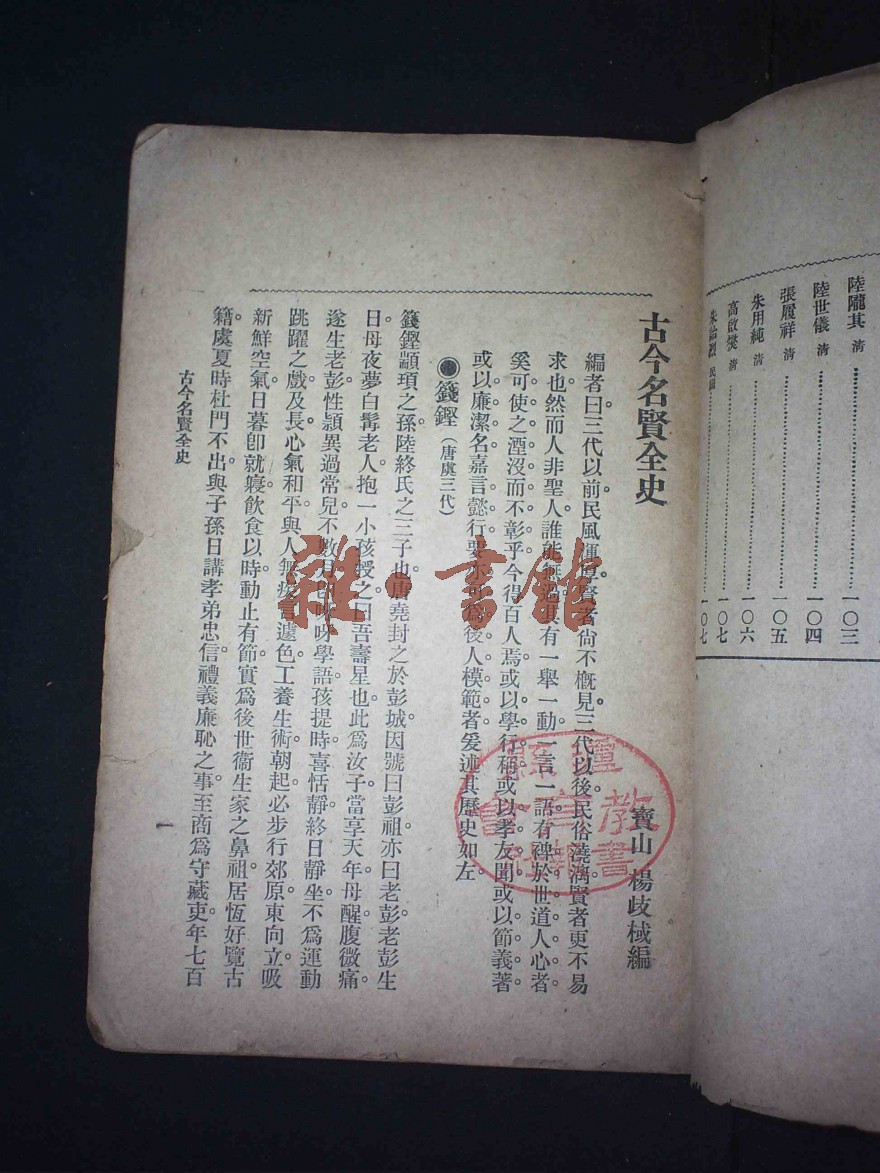 陸隴其 清 一〇三
陸世儀 清 一〇四
張履祥 清 一〇五
朱用純 清 一〇六
高啟燊 清 一〇七
朱 民國 一〇七
古今名賢全史
寶山 楊歧棫編
編者曰三代以前民風渾 賢者尚不概見三代以後民俗澆漓賢者更不易
求也然而人非聖人。誰能無過其有一舉一動。一言一語有裨於世道人心者。
奚可使之湮沒而不彰乎今得百人焉或以學行稱或以孝友聞或以節義著。
或以廉潔名嘉言懿行要亦可為後人模範者。爰述其歷史如左。
●籛鏗(唐虞三代)
籛鏗顓頊之孫陸終氏之三子也。唐堯封之於彭城因號曰彭祖亦曰老彭老彭生
日母夜夢白髯老人抱一小孩授之曰吾壽星也。此為汝子當享天年。母醒腹微痛。
遂生老彭性穎異過常兒。不數月即 呀學語孩提時喜恬靜終日靜坐不為運動
跳躍之戲及長心氣和平。與人無疾言遽色工養生術朝起必步行郊原東向立。吸
新鮮空氣日暮卽就寢飲食以時動止有節實為後世衞生家之鼻祖。居恆好覽古
籍虞夏時杜門不出與子孫日講孝弟忠信禮義廉恥之事至商為守藏吏年七百
古今名賢全史
一
雜·書館
教育
書
會